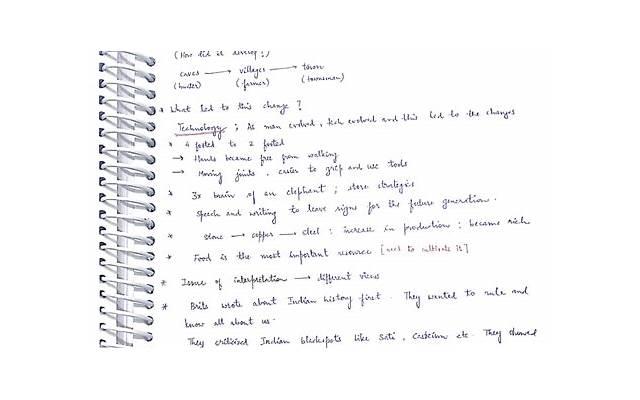 (How did it develop?)
caves → villages → town
(hunter) (farmer) (townsman)
* What led to this change?
Technology; As man evolved, tech evolved and this led to the changes
* 4 footed to 2 footed
→ Hands became free from walking
→ Moving joints, easier to grip and use tools
* 3x brain of an elephant; store strategies
* Speech and writing to leave signs for the future generation.
* stone → copper → steel: increase in production: became rich
* Food is the most important resource [need to cultivate it]
* Issue of interpretation → different views
* Brits wrote about Indian history first. They wanted to rule and
know all about us.
They criticised Indian blackspots like Sati, Casteism etc. They showed